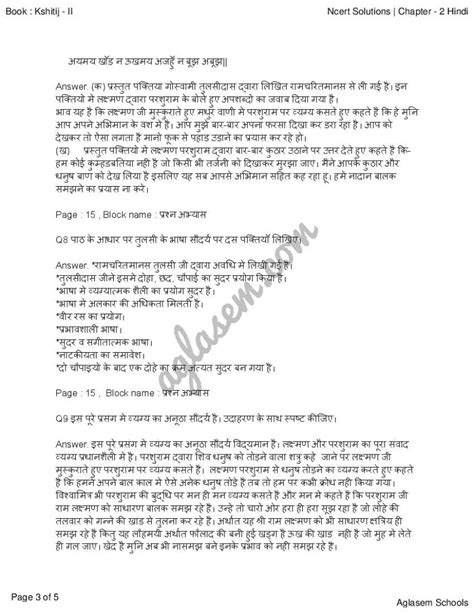 Book : Kshitij - II
Ncert Solutions | Chapter - 2 Hindi
अयमय खाँड न ऊखमय अजहुँ न बूझ अबूझ||
Answer. (क) प्रस्तुत पक्तिया गोस्वामी तुलसीदास द्वारा लिखित रामचरितमानस से ली गई है। इन
पक्तियो मे लक्ष्मण द्वारा परशुराम के बोले हुए अपशब्दो का जवाब दिया गया है।
भाव यह है कि लक्ष्मण जी मुस्कुराते हुए मधुर वाणी मे परशुराम पर व्यग्य कसते हुए कहते है कि हे मुनि
आप अपने अभिमान के वश मे है। आप मुझे बार-बार अपना फरसा दिखा कर डरा रहे है। आप को
देखकर तो ऐसा लगता है मानो फूक से पहाड उडाने का प्रयास कर रहे हो।
(ख) प्रस्तुत पक्तियो मे लक्ष्मण परशुराम द्वारा बार-बार कुठार उठाने पर उत्तर देते हुए कहते है कि-
हम कोई कुम्हडबतिया नही है जो किसी भी तर्जनी को दिखाकर मुरझा जाए। मैने आपके कुठार और
धनुष बाण को देख लिया है इसलिए यह सब आपसे अभिमान सहित कह रहा हू। हमे नादान बालक
समझने का प्रयास ना करे।
Page : 15 , Block name : प्रश्न अभ्यास
Q8 पाठ के आधार पर तुलसी के भाषा सौदर्य पर दस पक्तियाँ लिखिए।
Answer. *रामचरितमानस तुलसी जी द्वारा अवधि मे लिखी गई है।
*तुलसीदास जीने इसमे दोहा, छद, चौपाई का सुदर प्रयोग किया है।
*भाषा मे व्यग्यात्मक शैली का प्रयोग सुदर है।
*भाषा मे अलकार की अधिकता मिलती है।
*वीर रस का प्रयोग।
*प्रभावशाली भाषा।
*सुदर व सगीतात्मक भाषा।
*नाटकीयता का समावेश।
*दो चौपाइयो के बाद एक दोहे का क्रम अत्यत सुदर बन गया है।
aglasem.com
Page : 15 , Block name : प्रश्न अभ्यास
Q9 इस पूरे प्रसग मे व्यग्य का अनूठा सौदर्य है। उदाहरण के साथ स्पष्ट कीजिए।
Answer. इस पूरे प्रसग मे व्यग्य का अनूठा सौदर्य विद्यमान है। लक्ष्मण और परशुराम का पूरा सवाद
व्यग्य प्रधानशैली मे है। परशुराम द्वारा शिव धनुष को तोडने वाला शत्रु कहे जाने पर लक्ष्मण जी
मुस्कुराते हुए परशुराम पर व्यग्य कसते है। लक्ष्मण परशुराम से धनुष तोडने का व्यग्य करते हुए कहते
है कि हमने अपने बाल काल मे ऐसे अनेक धनुष तोडे है तब तो हम पर कभी क्रोध नही किया गया।
विश्वामित्र भी परशुराम की बुद्धि पर मन ही मन व्यग्य कसते है और मन मे कहते है कि परशुराम जी
राम लक्ष्मण को साधारण बालक समझ रहे है। उन्हे तो चारो ओर हरा ही हरा सूझ रहा है जो लोहे की
तलवार को गन्ने की खाड से तुलना कर रहे है। अर्थात यह श्री राम लक्ष्मण को भी साधारण क्षत्रिय ही
समझ रहे है किन्तु यह लौहमयी अर्थात फौलाद की बनी हुई खड्ग है ऊख की खाड नही है जो मुह मे लेते
ही गल जाए। खेद है मुनि अब भी नासमझ बने इनके प्रभाव को नही समझ रहे है।
Page 3 of 5
Aglasem Schools